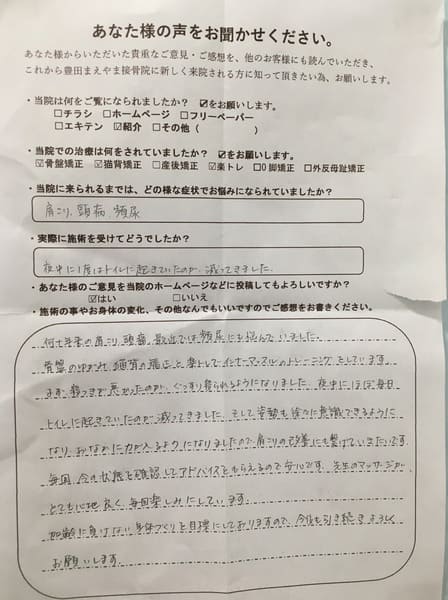 あなた様の声をお聞かせください。
あなた様からいただいた貴重なご意見・ご感想を、他のお客様にも読んでいただき、
これから豊田まえやま接骨院に新しく来院される方に知って頂きたい為、お願いします。
・当院は何をご覧になられましたか? ☑をお願いします。
□チラシ □ホームページ □フリーペーパー
□エキテン ☑紹介 □その他( )
・当院での治療は何をされていましたか? ☑をお願いします。
☑骨盤矯正 ☑猫背矯正 □産後矯正 ☑楽トレ □O脚矯正 □外反母趾矯正
・当院に来られるまでは、どの様な症状でお悩みになられていましたか?
肩こり、頭痛、頻尿
・実際に施術を受けてどうでしたか?
夜中に1度はトイレに起きていたのが、減ってきました。
・あなた様のご意見を当院のホームページなどに投稿してもよろしいですか?
☑はい □いいえ
・施術の事やお身体の変化、その他なんでもいいですのでご感想をお書きください。
何十年来の肩こり、頭痛、最近では頻尿にも悩んでいました。
骨盤のゆがみ、猫背の矯正と楽トレでインナーマッスルのトレーニングをしています。
まず、寝つきが悪かったのが、ぐっすり寝られるようになりました。夜中にほぼ毎日
トイレに起きていたのが減ってきました。そして姿勢も徐々に意識できるように
なり、おなかに力が入るようになりましたので、肩こりの改善にも繋げていきたいです。
毎回、今の状態を確認してアドバイスをもらえるので安心です。先生のマッサージが、
とても心地良く、毎回楽しみにしています。
加齢に負けない身体づくりを目標にしておりますので、今後も引き続きよろしく
お願いします。